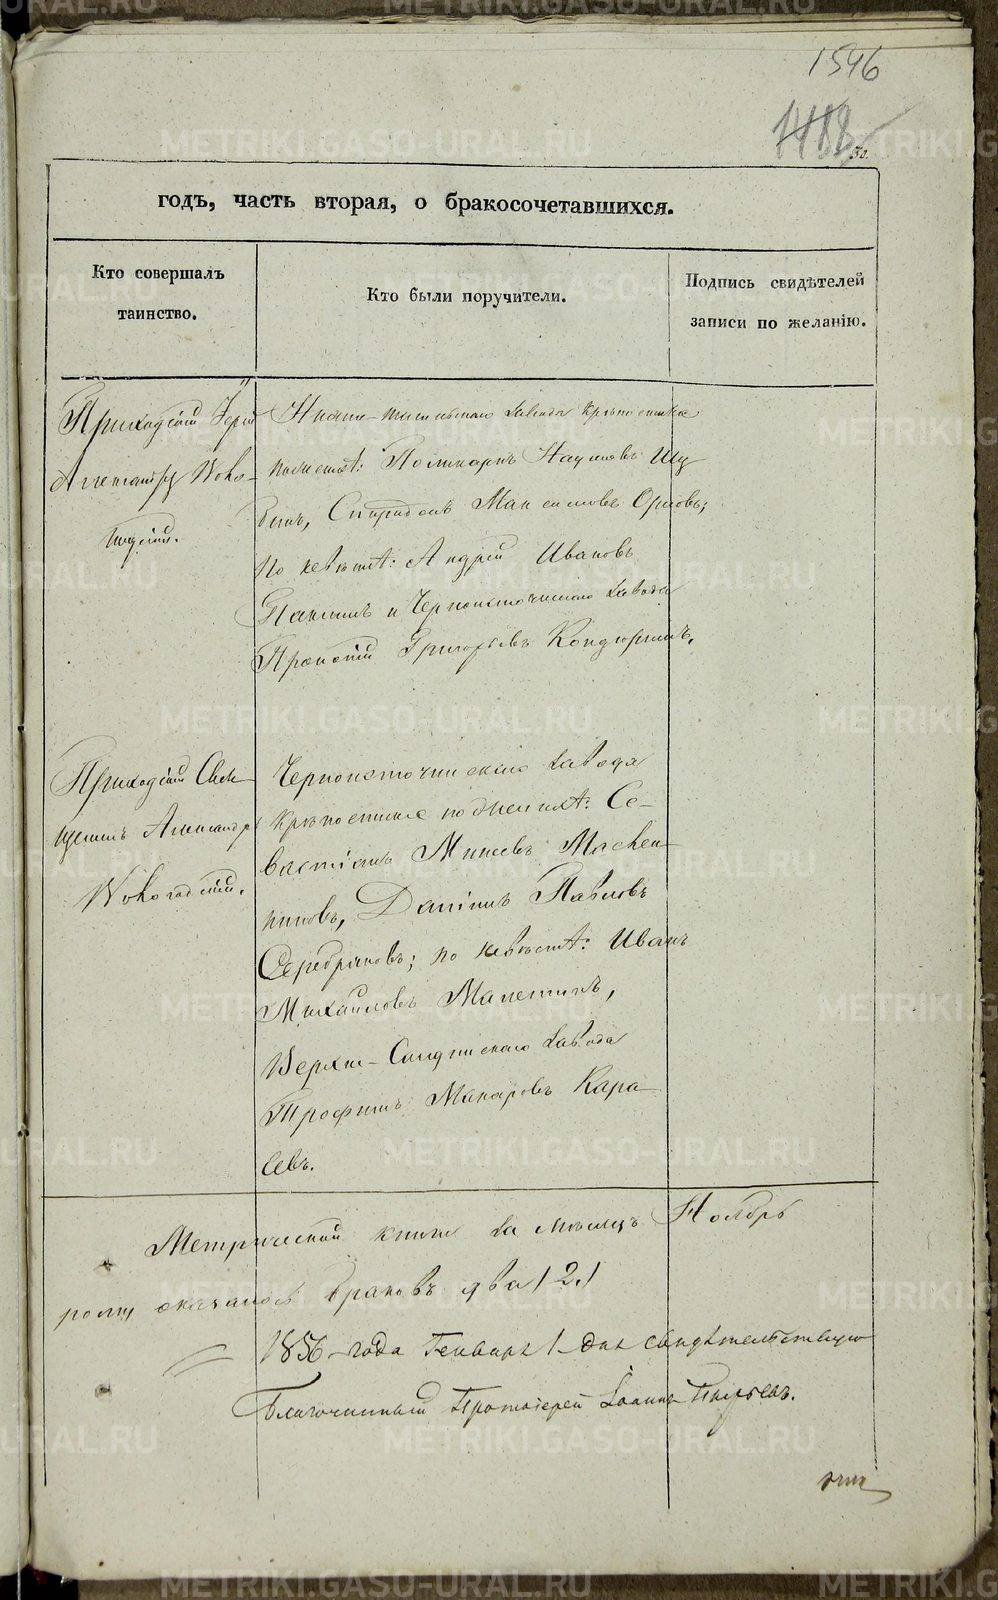 1546
1488
52.
годъ, часть вторая, о бракосочетавшихся.
Кто совершалъ
таинство.
Кто были поручители.
Подпись свидѣтелей
записи по желанію.
Приходскій Іерей
Александръ
Нижне-тагильскаго завода крѣпостные
по женихѣ: Поликарпъ Наумовъ
Спиридонъ Максимовъ Орловъ;
по невѣстѣ: Андрей Ивановъ
и Черноисточинскаго завода
Григорьевъ Кондюринъ.
Приходскій Свя-
щенникъ Александръ
Черноисточинскаго завода
крѣпостные по женихѣ: Се-
вастіанъ
Даніилъ Павловъ
Серебряковъ; по невѣстѣ: Иванъ
Михайловъ
Верхне-Салдинскаго завода
Трофимъ Макаровъ Кара-
севъ.
Метрической книги за мѣсяцъ Ноябрь
оказалось браковъ два /2./
1856 года Генваря 1 дня свидѣтельствую
Благочинный Протоіерей Іоаннъ
METRIKI.GASO-URAL.RU